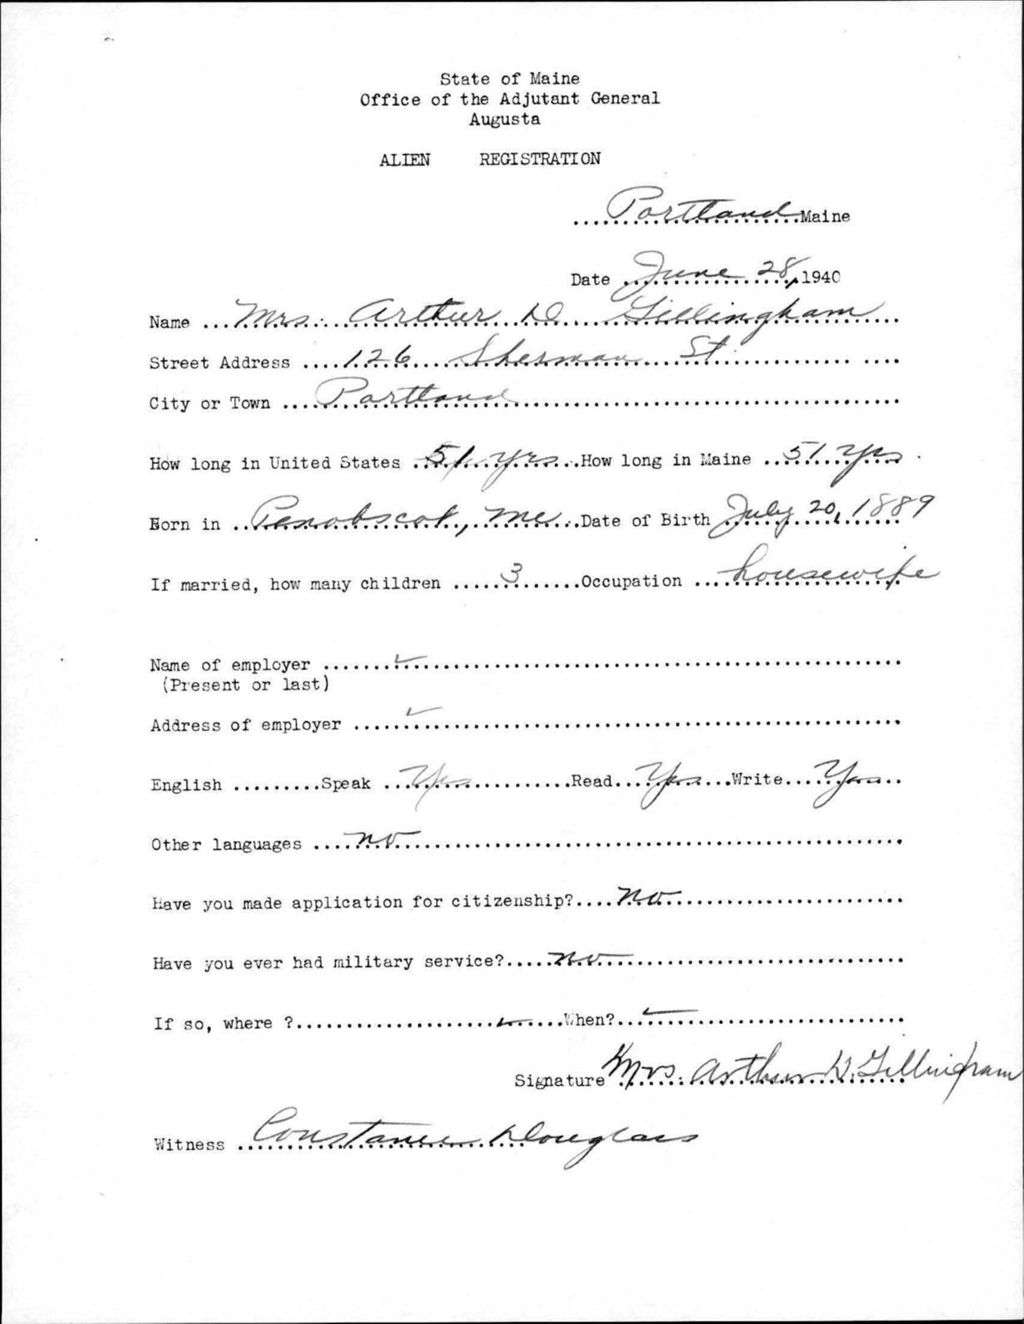 State of Maine
Office of the Adjutant General
Augusta
ALIEN REGISTRATION
Portland Maine
Date June 28, 1940
Name Mrs. Arthur D Gillingham
Street Address 126 Sherman St.
City or Town Portland
How long in United States 51 yrs How long in Maine 51 Yrs
Born in Penobscot, Me Date of Birth July 20, 1889
If married, how many children 3 Occupation housewife
Name of employer ✓
(Present or last)
Address of employer ✓
English Speak Yes Read Yes Write Yes
Other languages no
Have you made application for citizenship? No
Have you ever had military service? no
If so, where ? ✓ When? ✓
Signature Mrs. Arthur D. Gillingham
Witness Constance Douglass